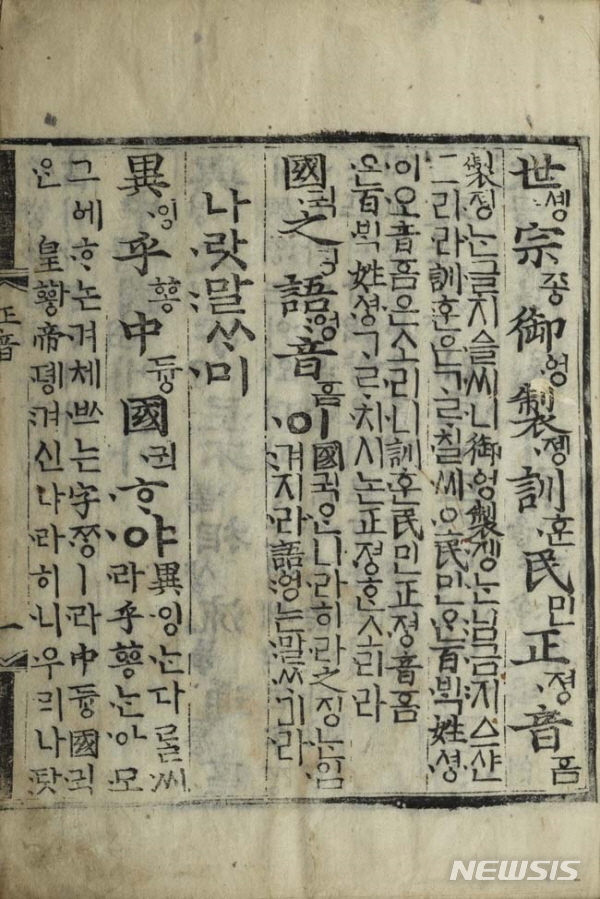 世솅宗종御엉製졩訓훈民민正졍音ᅙᅳᆷ
製졩는글지슬씨니御엉製졩는님금지스샨
그리라訓훈은ᄀᆞᄅᆞ칠씨오民민은百ᄇᆡᆨ姓셩
이오音ᅙᅳᆷ은소리니訓훈民민正졍音ᅙᅳᆷ
은百ᄇᆡᆨ姓셩ᄀᆞᄅᆞ치시논正졍ᄒᆞᆫ소리라
國귁之징語엉音ᅙᅳᆷ이
國귁은나라히라之징는입
겨지라語엉는말ᄊᆞ미라
나랏말ᄊᆞ미
異잉乎ᅘᅩᆼ中듀ᇰ國귁ᄒᆞ야
異잉는다ᄅᆞᆯ씨
라乎ᅘᅩᆼ는아모
그ᅌᅦᄒᆞ논겨체ᄡᅳ는字ᄍᆞᆼㅣ라中듀ᇰ國귁
은皇ᅘᅪᆼ帝뎽겨신나라히니우리나랏
正音
一
NEWSIS